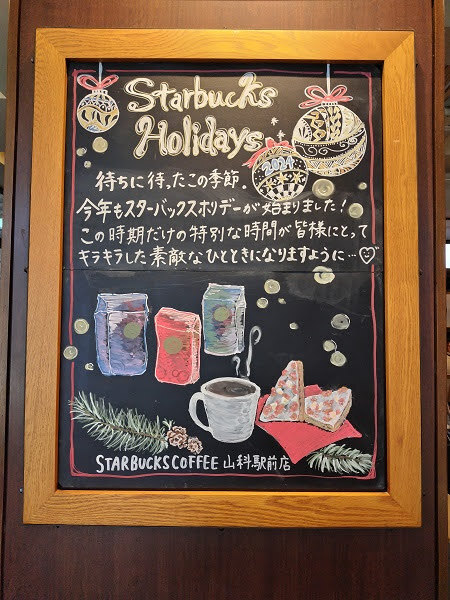 Starbucks
Holidays
2024
待ちに待ったこの季節。
今年もスターバックスホリデーが始まりました！
この時期だけの特別な時間が皆様にとって
キラキラした素敵なひとときになりますように…
STARBUCKS COFFEE 山科駅前店